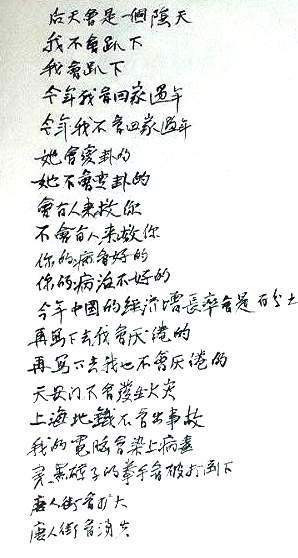 后天會是一個陰天
我不會趴下
我會趴下
今年我會回家過年
今年我不會回家過年
她會變卦的
她不會變卦的
會有人来救你
不會有人来救你
你的病會好的
你的病治不好的
今年中國的經濟增長率會是百分七
再寫下去我會厌倦的
再寫下去我也不會厌倦的
天安门不會發生火災
上海地鐵不會出事故
我的電腦會染上病毒
的拳手會被打倒下
唐人街會扩大
唐人街會消失